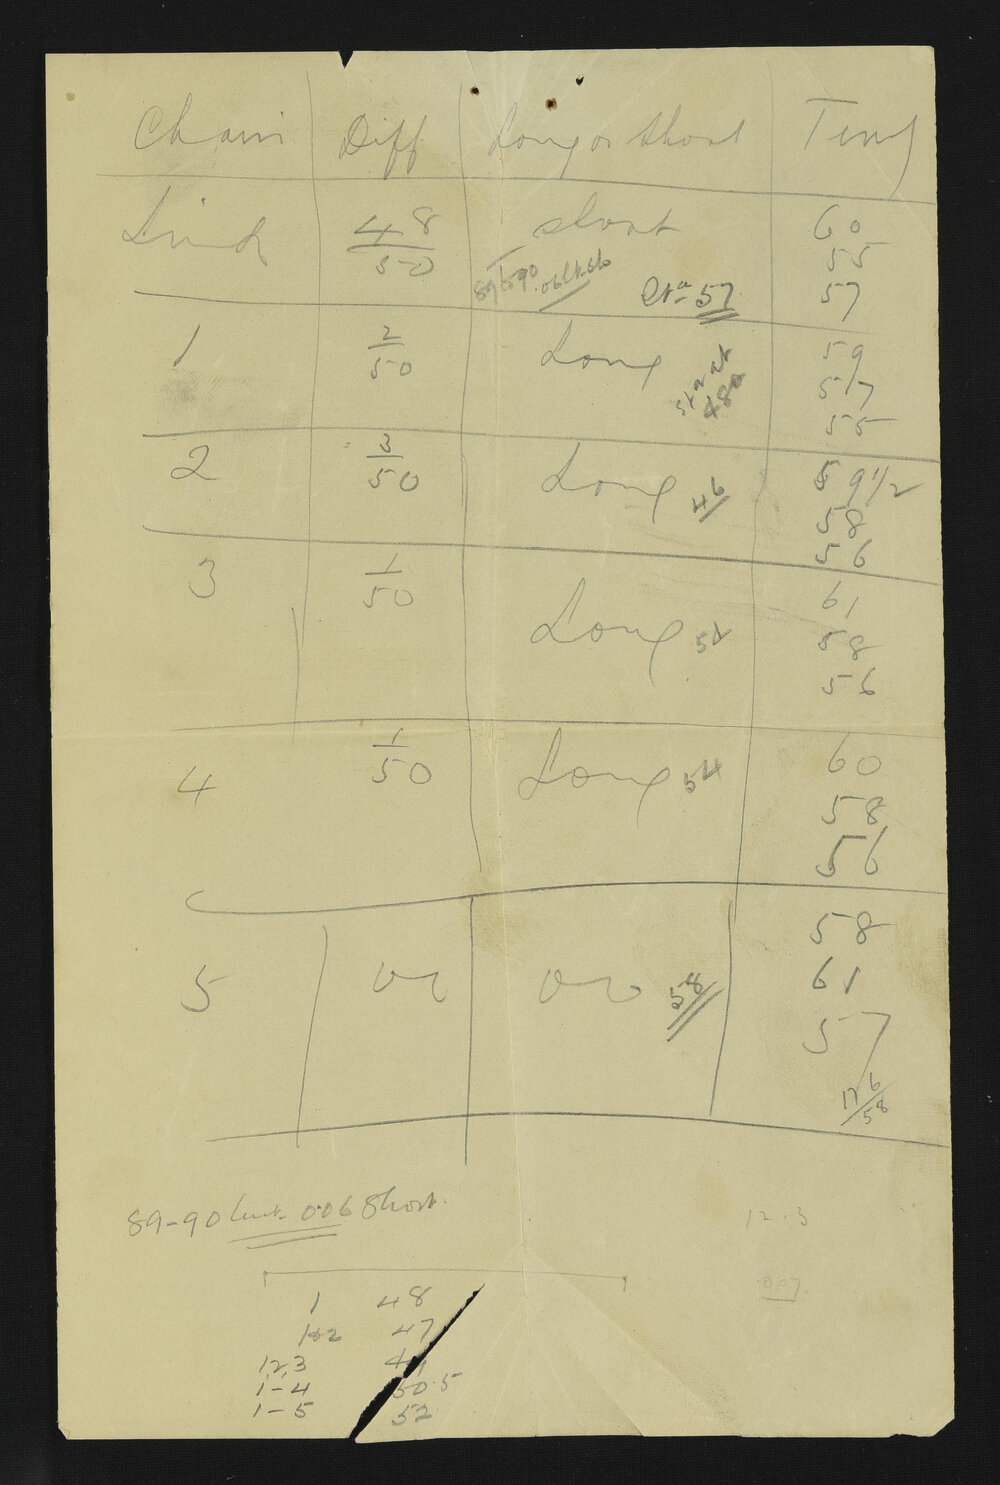 Chain Diff Long or Short Temp
Link 48/50 short 60
55
89 to 90 .06 lk. sh Sta 57 57
1 2/50 Long 59
57
55
2 3/50 Long 46 59 1/2
58
56
3 1/50 Long 52 61
58
56
4 1/50 Long 54 60
58
56
5 58 58
61
57
176/58
89-90 link 0.06 Short.
12.3
007
1 48
1&2 47
1,2,3 49
1-4 50.5
1-5 52